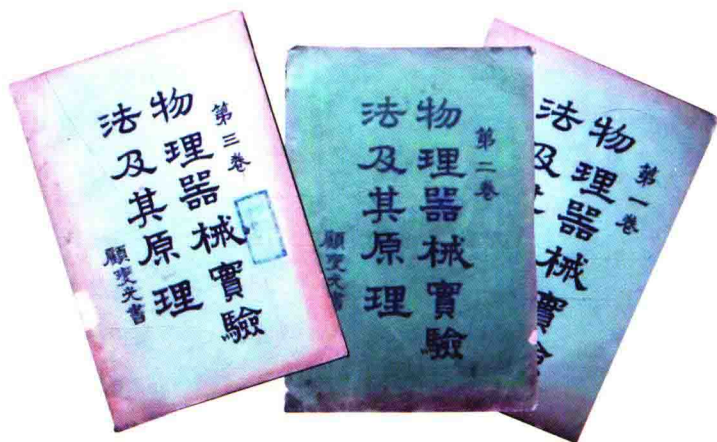 第三卷
物理器械實驗
法及其原理
第二卷
物理器械實驗
法及其原理
第一卷
物理器械實驗
法及其